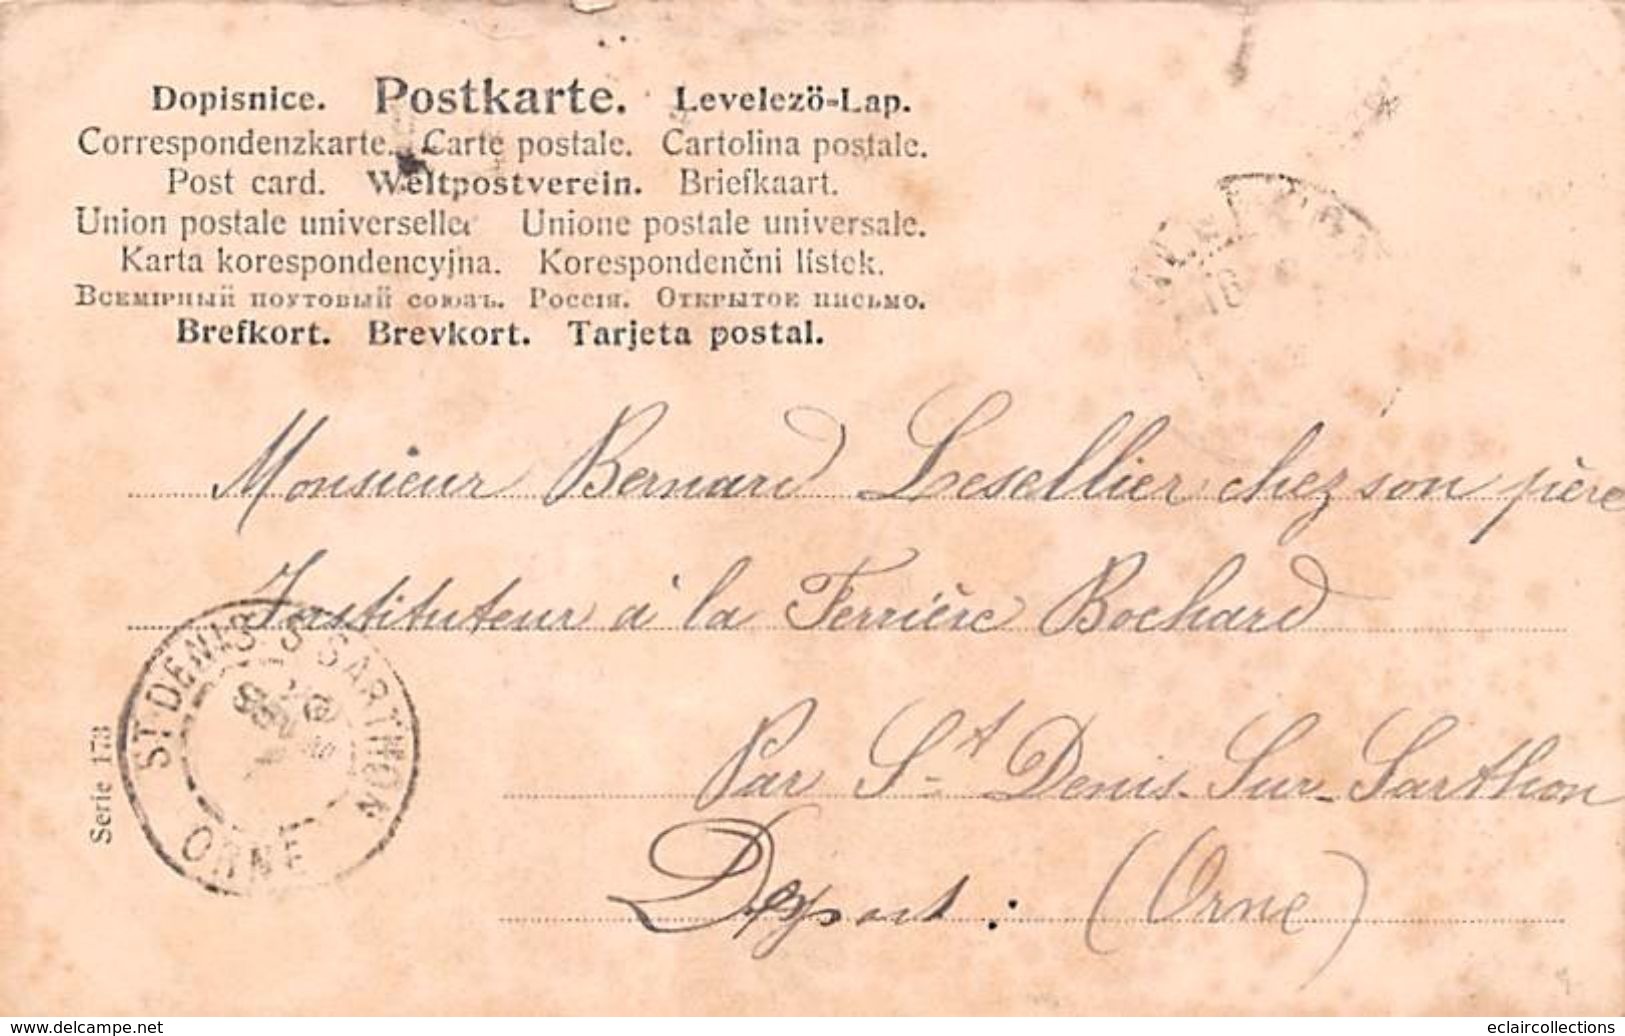 Dopisnice. Postkarte. Levelező-Lap.
Correspondenzkarte. Carte postale. Cartolina postale.
Post card. Weltpostverein. Briefkaart.
Union postale universelle. Unione postale universale.
Karta korespondencyjna. Korespondenčni lístek.
Всемірный почтовый союзъ. Россія. Открытое письмо.
Brefkort. Brevkort. Tarjeta postal.
Monsieur Bernard Lesellier chez son père
Instituteur à la Ferrière Bochard
Par St Denis-Sur-Sarthon
Depart: (Orne)
ST DENIS-S-SARTHON
ORNE
Serie 173
www.delcampe.net
eclaircollections